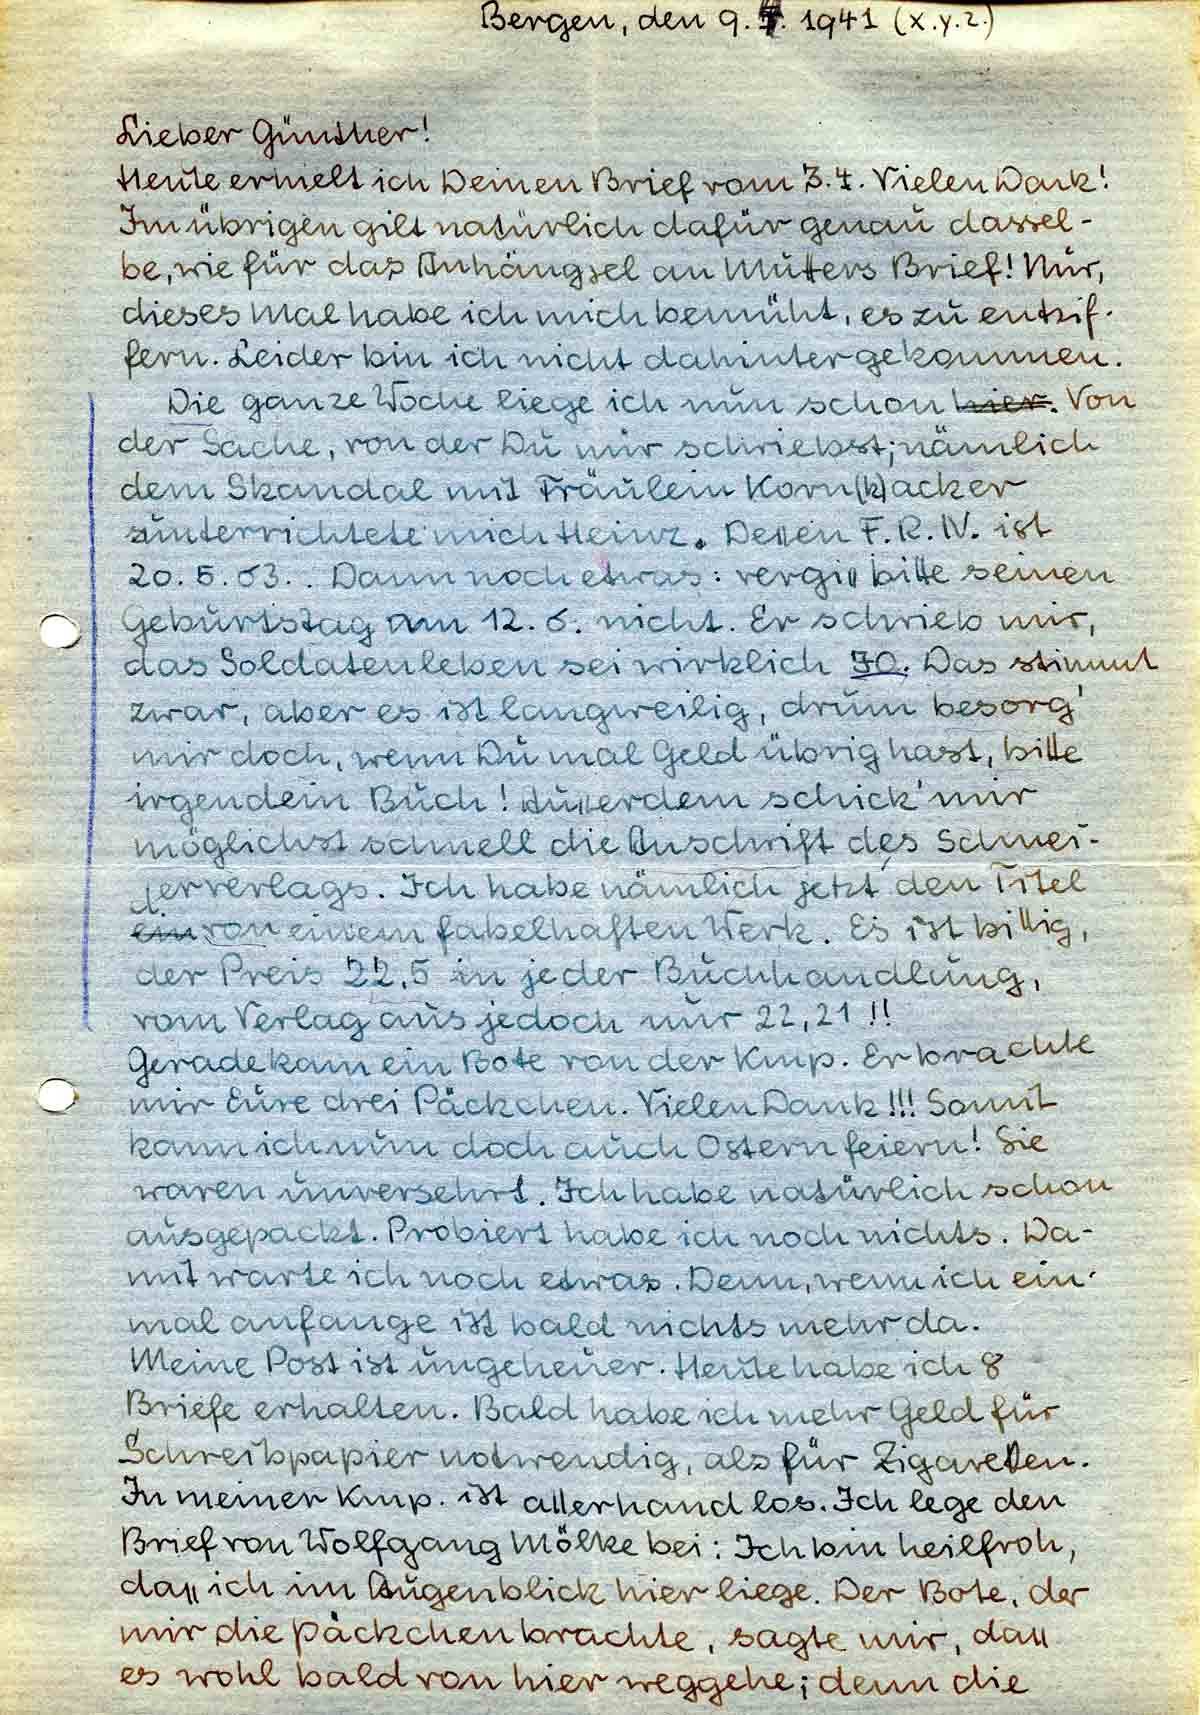 Bergen, den 9. 4. 1941 (x.y.z.)
Lieber Günther!
Heute erhielt ich Deinen Brief vom 3.4. Vielen Dank!
Im übrigen gilt natürlich dafür genau dassel-
be, wie für das Anhängsel an Mutters Brief! Nur,
dieses Mal habe ich mich bemüht, es zu entzif-
fern. Leider bin ich nicht dahinter gekommen.
Die ganze Woche liege ich nun schon hier. Von
der Sache, von der Du mir schriebst; nämlich
dem Skandal mit Fräulein Korn(k)acker
unterrichtete mich Heinz. Dessen F.R.IV. ist
20.5.03.. Dann noch etwas: vergiß bitte seinen
Geburtstag am 12.6. nicht. Er schrieb mir,
das Soldatenleben sei wirklich IO. Das stimmt
zwar, aber es ist langweilig, drum besorg'
mir doch, wenn Du mal Geld übrig hast, bitte
irgendein Buch! Außerdem schick' mir
möglichst schnell die Anschrift des Schnei-
derverlags. Ich habe nämlich jetzt den Titel
ein von einem fabelhaften Werk. Es ist billig,
der Preis 22,5 in jeder Buchhandlung,
vom Verlag aus jedoch nur 22,21!!
Gerade kam ein Bote von der Kmp. Er brachte
mir Eure drei Päckchen. Vielen Dank!!! Somit
kann ich nun doch auch Ostern feiern! Sie
waren unversehrt. Ich habe natürlich schon
ausgepackt. Probiert habe ich noch nichts. Da-
mit warte ich noch etwas. Denn, wenn ich ein-
mal anfange ist bald nichts mehr da.
Meine Post ist ungeheuer. Heute habe ich 8
Briefe erhalten. Bald habe ich mehr Geld für
Schreibpapier notwendig, als für Zigaretten.
In meiner Kmp. ist allerhand los. Ich lege den
Brief von Wolfgang Mölke bei: Ich bin heilfroh,
daß ich im Augenblick hier liege. Der Bote, der
mir die Päckchen brachte, sagte mir, daß
es wohl bald von hier weggehe; denn die